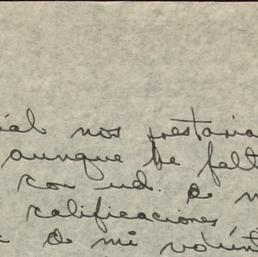 ial nos prestaria
aunque he falt
con ud. o n
calificaciones
a o mi volunt